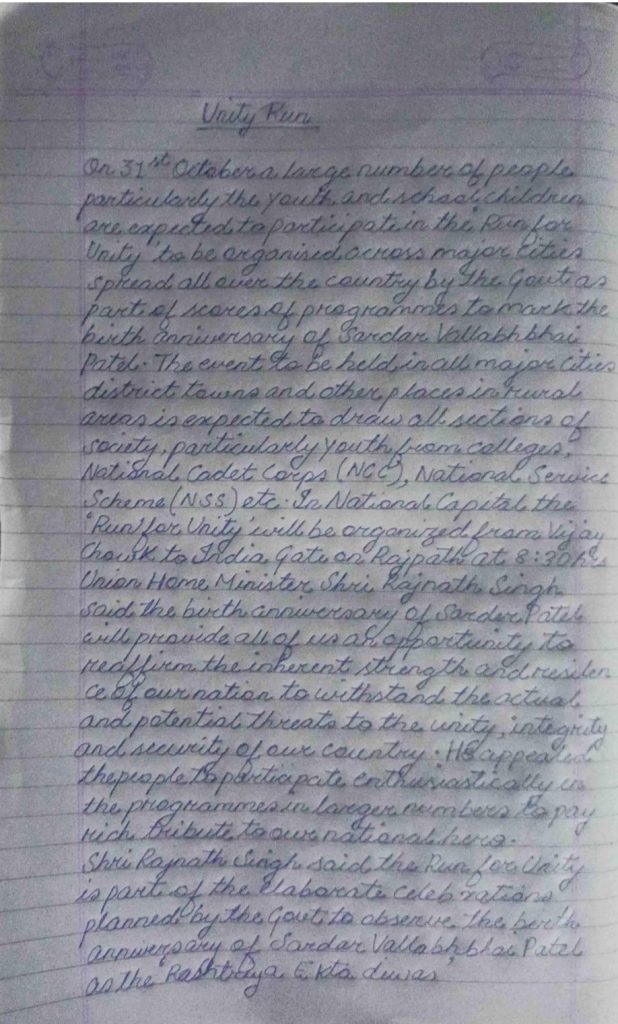 Unity Run
On 31st October a large number of people
particularly the youth and school children
are expected to participate in the 'Run for
Unity' to be organised across major cities
spread all over the country by the Govt as
part of scores of programmes to mark the
birth anniversary of Sardar Vallabhbhai
Patel. The event to be held in all major cities
district towns and other places in rural
areas is expected to draw all sections of
society, particularly youth from colleges,
National Cadet Corps (NCC), National Service
Scheme (NSS) etc. In National Capital the
'Run for Unity' will be organized from Vijay
Chowk to India Gate on Rajpath at 8:30 hrs
Union Home Minister Shri Rajnath Singh
said the birth anniversary of Sardar Patel
will provide all of us an opportunity to
reaffirm the inherent strength and resilen
ce of our nation to withstand the actual
and potential threats to the unity, integrity
and security of our country. He appealed
the people to participate enthusiastically in
the programmes in larger numbers to pay
rich tribute to our national hero.
Shri Rajnath Singh said the Run for Unity
is part of the elaborate celebrations
planned by the Govt to observe the birth
anniversary of Sardar Vallabhbhai Patel
as the 'Rashtriya Ekta diwas'